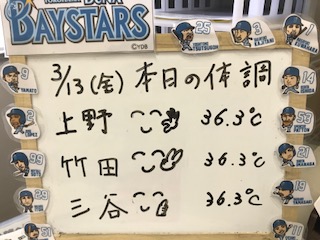 BAYSTARS
©YDB
3/13(金) 本日の体調
上野 36.3℃
竹田 36.3℃
三谷 36.3℃
25
3
9
14
2
53
99
21
29
19
51
11